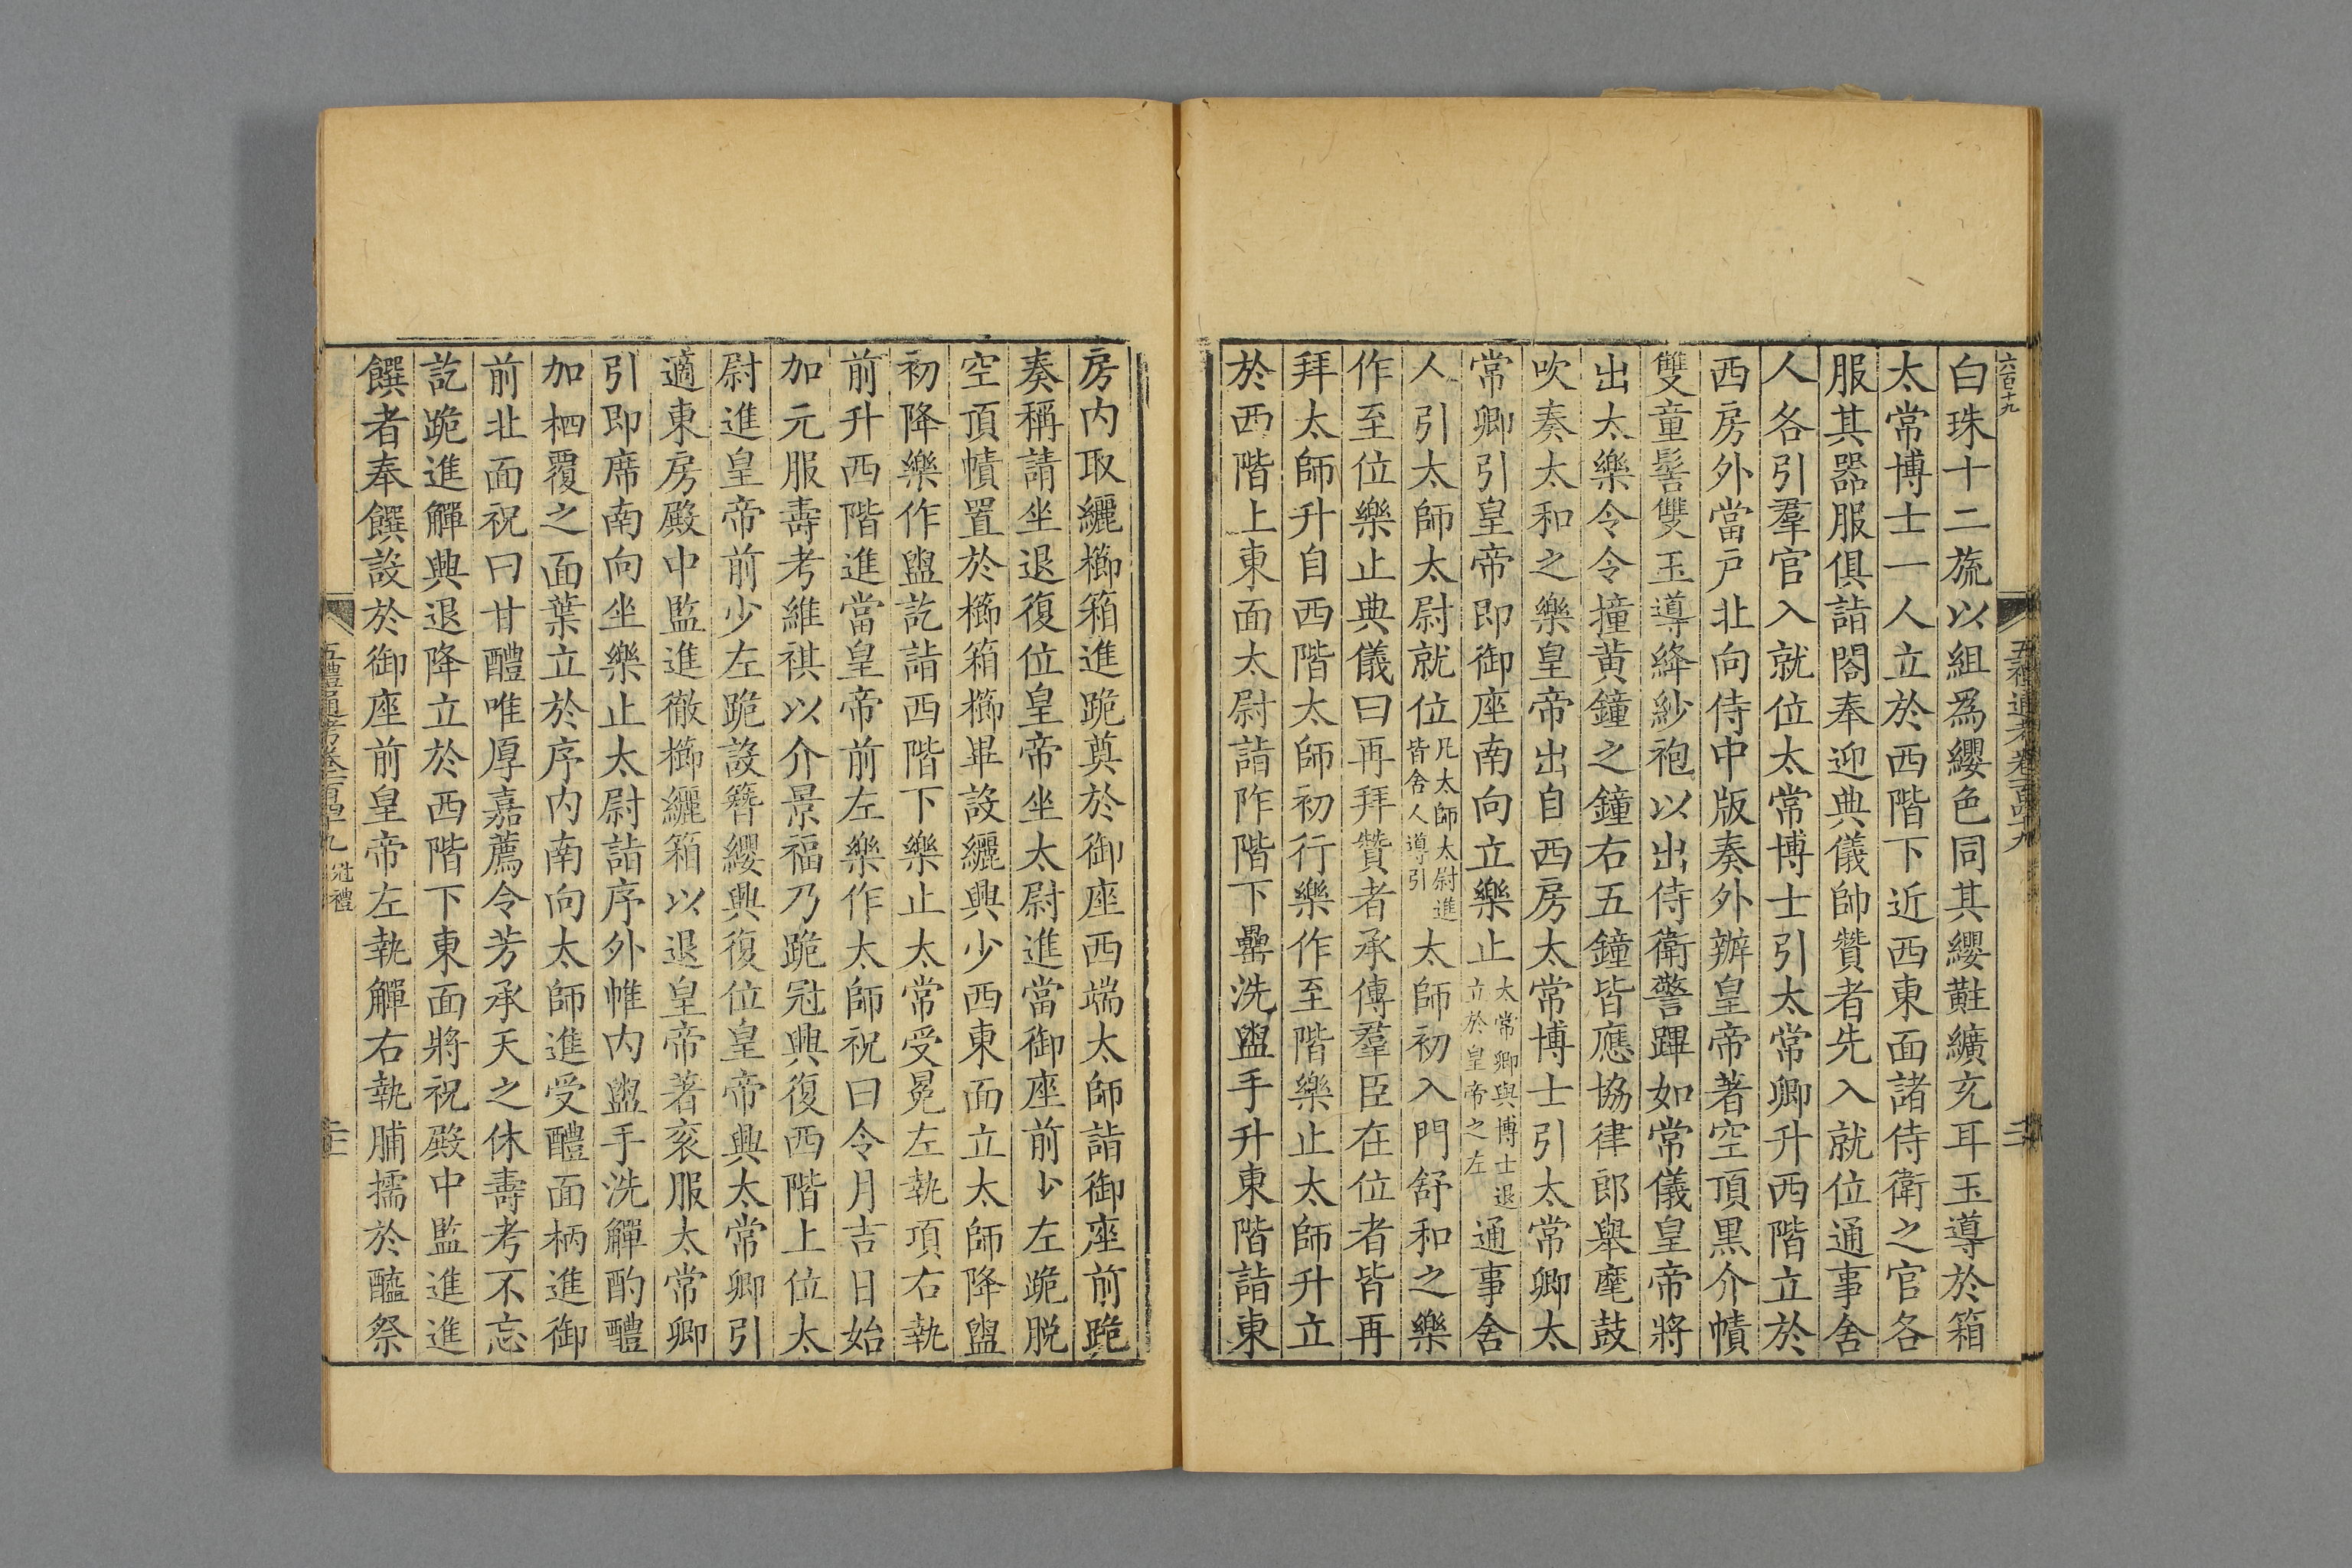 六百十九
五禮通考卷一百四十九
二
白珠十二旒以組爲纓色同其纓黈纊充耳玉導於箱
太常博士一人立於西階下近西東面諸侍衛之官各
服其器服俱詣閤奉迎典儀帥贊者先入就位通事舍
人各引羣官入就位太常博士引太常卿升西階立於
西房外當戸北向侍中版奏外辦皇帝著空頂黒介幘
雙童髻雙玉導絳紗袍以出侍衛警蹕如常儀皇帝將
出太樂令令撞黄鐘之鐘右五鐘皆應協律郎舉麾鼓
吹奏太和之樂皇帝出自西房太常博士引太常卿太
常卿引皇帝即御座南向立樂止太常卿與博士退立於皇帝之左通事舍
人引太師太尉就位凡太師太尉進皆舍人導引太師初入門舒和之樂
作至位樂止典儀曰再拜贊者承傳羣臣在位者皆再
拜太師升自西階太師初行樂作至階樂止太師升立
於西階上東面太尉詣阼階下罍洗盥手升東階詣東
房内取纚櫛箱進跪奠於御座西端太師詣御座前跪
奏稱請坐退復位皇帝坐太尉進當御座前少左跪脱
空頂幘置於櫛箱櫛畢設纚興少西東面立太師降盥
初降樂作盥訖詣西階下樂止太常受冕左執項右執
前升西階進當皇帝前左樂作太師祝曰令月吉日始
加元服壽考維祺以介景福乃跪冠興復西階上位太
尉進皇帝前少左跪設簪纓興復位皇帝興太常卿引
適東房殿中監進徹櫛纚箱以退皇帝著衮服太常卿
引即席南向坐樂止太尉詣序外帷内盥手洗觶酌醴
加柶覆之面葉立於序内南向太師進受醴面柄進御
前北面祝曰甘醴唯厚嘉薦令芳承天之休壽考不忘
訖跪進觶興退降立於西階下東面將祝殿中監進進
饌者奉饌設於御座前皇帝左執觶右執脯擩於醢祭
五禮通考卷一百四十九 冠禮
二